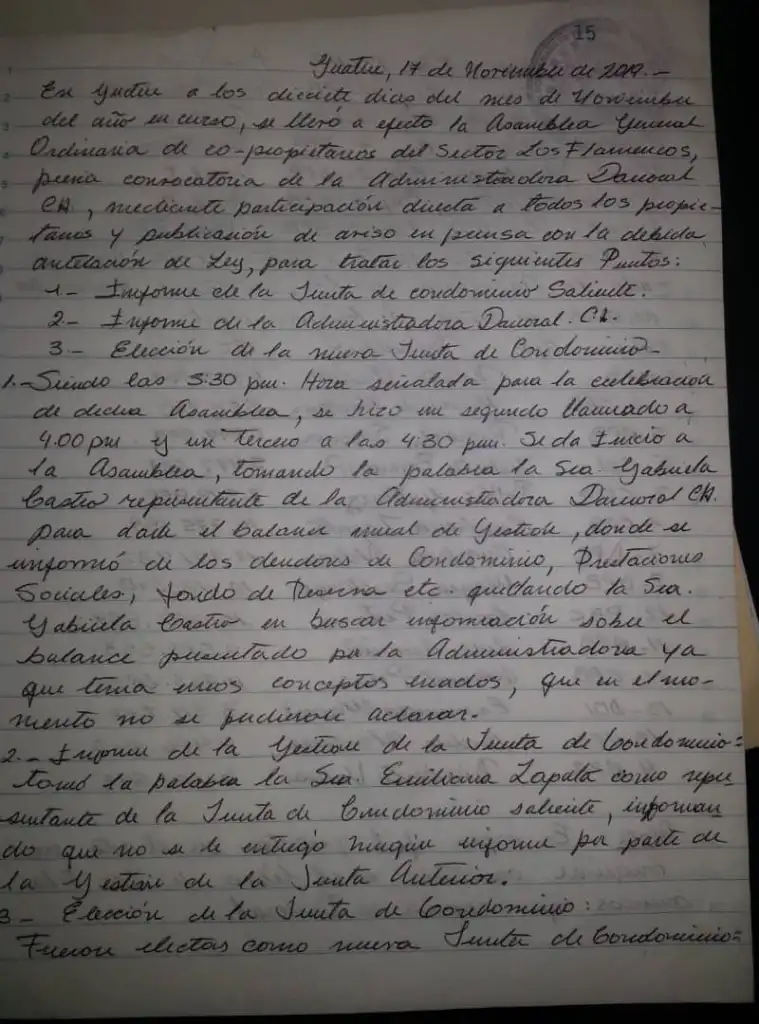 15
Guatire, 17 de Noviembre de 2019.-
En Guatire a los diecisiete dias del mes de Noviembre
del año en curso, se llevó a efecto la Asamblea General
Ordinaria de co-propietarios del Sector Los Flamencos,
previa convocatoria de la Administradora Danoral
CA, mediante participación directa a todos los propie-
tarios y publicación de aviso en prensa con la debida
antelación de Ley, para tratar los siguientes Puntos:
1.- Informe de la Junta de condominio Saliente.
2.- Informe de la Administradora Danoral. C.A.
3.- Elección de la nueva Junta de Condominio-
1.- Siendo las 3:30 pm. Hora señalada para la celebración
de dicha Asamblea, se hizo un segundo llamado a
4.00 pm y un tercero a las 4:30 pm. Se da Inicio a
la Asamblea, tomando la palabra la Sra. Gabriela
Castro representante de la Administradora Danoral CA.
para darle el balance anual de Gestión, donde se
informó de los deudores de Condominio, Prestaciones
Sociales, fondo de Reserva etc. quedando la Sra.
Gabriela Castro en buscar información sobre el
balance presentado por la Administradora ya
que tenia unos conceptos errados, que en el mo-
mento no se pudieron aclarar.-
2.- Informe de la Gestión de la Junta de Condominio=
tomó la palabra la Sra. Emiliana Zapata como repre
sentante de la Junta de Condominio saliente, informan
do que no se le entregó ningún informe por parte de
la Gestión de la Junta Anterior.
3- Elección de la Junta de Condominio:
Fueron electas como nueva Junta de Condominio=